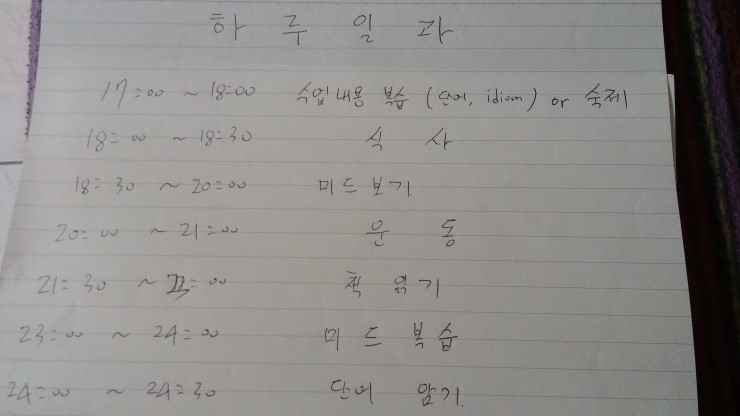 하루일과
17:00 ~ 18:00 수업내용 복습 (단어, idiom) or 숙제
18:00 ~ 18:30 식사
18:30 ~ 20:00 미드보기
20:00 ~ 21:00 운동
21:30 ~ :00 책 읽기
23:00 ~ 24:00 미드 복습
24:00 ~ 24:30 단어 암기.